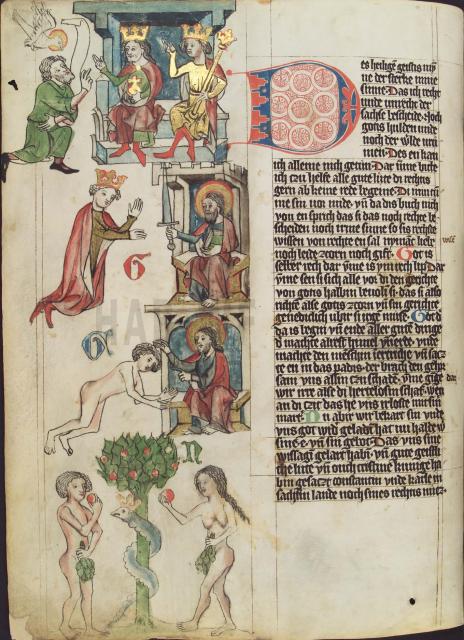 es heilige geistis mỹ
ne der sterke mine
sinne· Das ich recht
unde unrecht der
sachse bescheide· Noch
gotis hulden unde
noch der werlde vrū
men· Des en kan
ich alleine nich getun· Dar ūme bitte
ich czu helfe alle gute lute di rechtis
gern ab keine rede begeine· Di min tūme
sin vor mide· vñ da dis buch nich
von en sprich das si das noch rechte be
scheiden noch irme sinne so sis rechte
wissen· von rechte en sal nymāt liebe
noch leide· zcorn noch gift· Got is
selber rech dar ūme is ym rech lip· Dar
ūme sen si sich alle vor di den gerichte
von gotis halbin bevoln si· das si also
richte alse gotis zcorn vñ sin gerichte
genediclich ubir si irge muse· Got d
da is begin vñ ende aller gute dinge
d machte allerst himel vñ erde· unde
machte den menschin i ertriche· vñ sacz
te en in das padis· der brach den gehor
sam uns allin czu schadē· ūme gige dar
wir irre alse di hertelosin schaf· wen
an di czit das he uns irloste mit sin
mart· Nu abir wir bekart sin unde
uns got wid geladt hat nu halde w
sin e vñ sin gebot· Das uns sine
wissagī gelart habī· vñ gute geistli
che lute vñ ouch cristine kuninge ha
bin gesacz constantin unde karle in
sachsin lande noch sines rechtis nucz
G
G
N